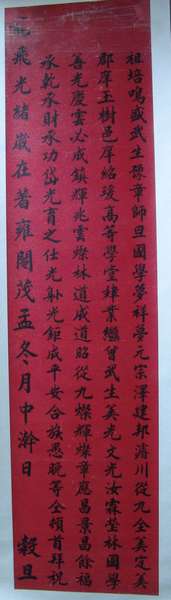 祖培鳴盛武生穎章師旦國學夢祥夢元宗澤建邦濬川從九全美定美
郡庠玉樹邑庠紹琰高等學堂肄業繼曾武生美光文光汝霖瑩林國學
善光慶雲必成鎮輝兆雲燦林道成道昭從九燦輝燦章應昌景昌餘福
承乾承財承功岱光育之仕光船光鉅成平安合族愚晚等全頓首拜祝
龍飛光緒歲在著雍閹茂孟冬月中澣日 穀旦